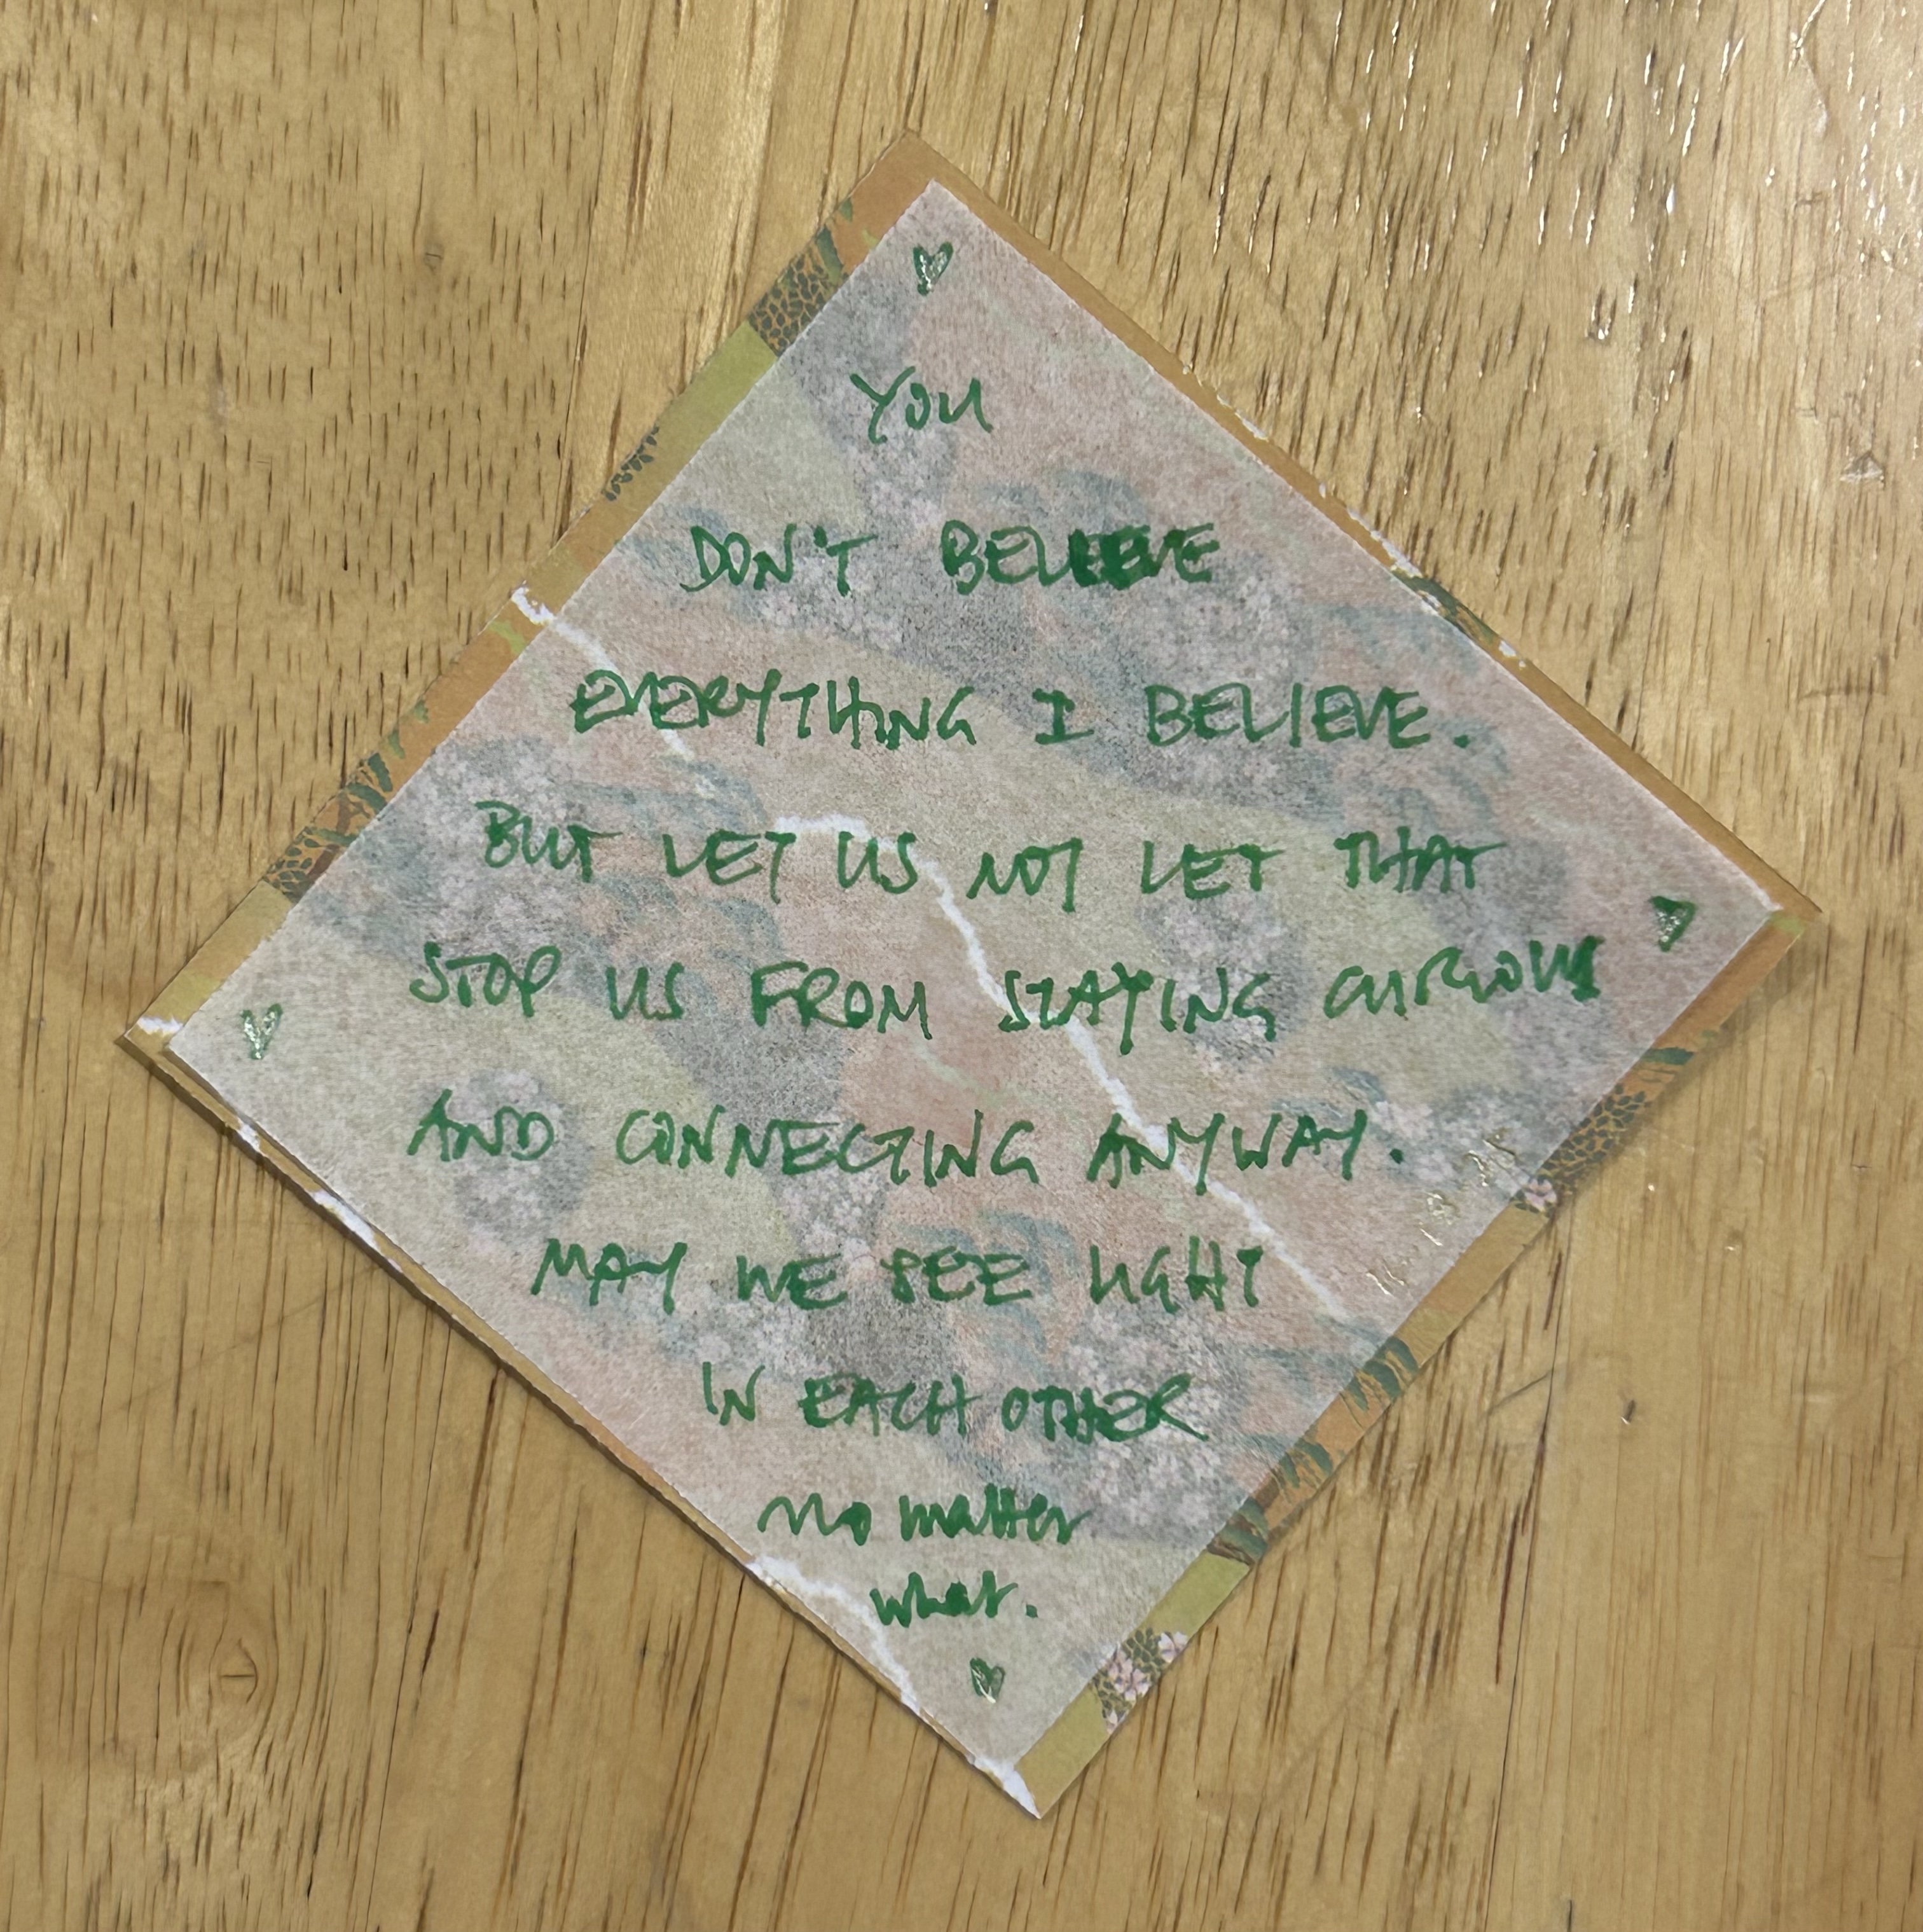 YOU
DON'T BELIEVE
EVERYTHING I BELIEVE.
BUT LET US NOT LET THAT
STOP US FROM STAYING CURIOUS
AND CONNECTING ANYWAY.
MAY WE SEE LIGHT
IN EACH OTHER
no matter
what.